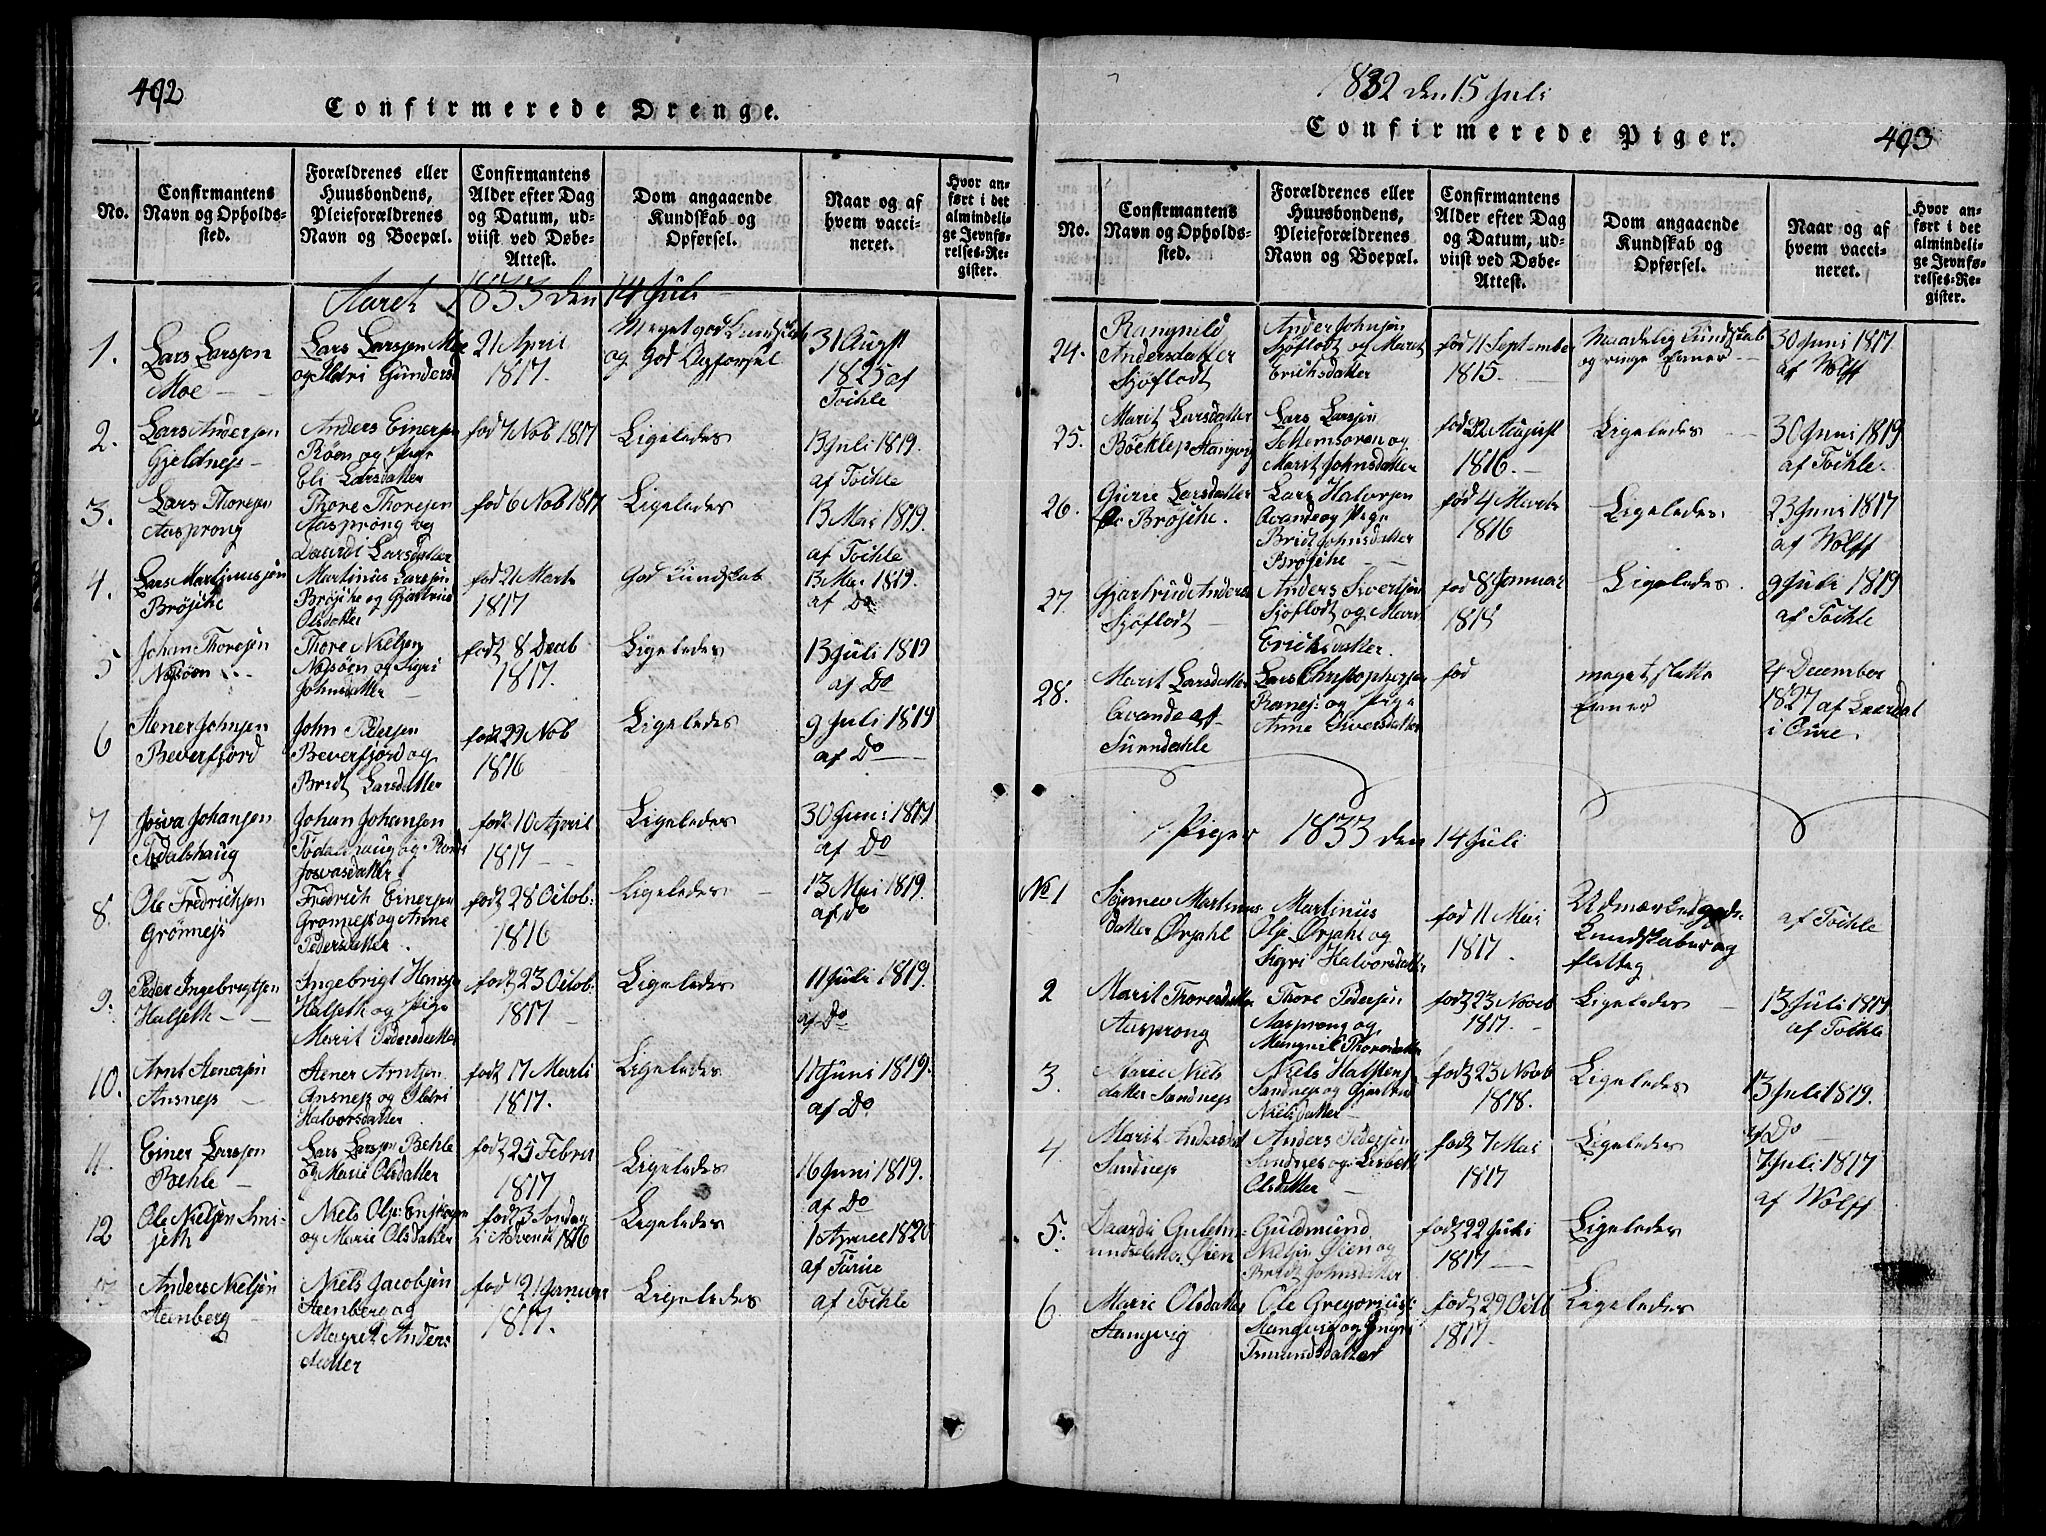 492
Confirmerede Drenge.
No.
Confirmantens
Navn og Opholds-
sted.
Forældrenes eller
Huusbondens,
Pleieforældrenes
Navn og Boepæl.
Confirmantens
Alder efter Dag
og Datum, ud-
viist ved Døbe-
Attest.
Dom angaaende
Kundskab og
Opførsel.
Naar og af
hvem vacci-
neret.
Hvor an-
ført i det
almindeli-
ge Jevnfø-
relses-Re-
gister.
Aaret 1833 den 14 Juli
1.
Lars Larsen
Moe
Lars Larsen Moe
og Gunders
21 April
1817.
Meget god Kundskab
og God Opførsel
31 August
1825 af
Tøihle
2.
Lars Andersen
Gjeldnes
Anders Einersen
Røen og Pige
Eli Larsdatter
fød 7 Nob 1817
Ligeledes
13 Juli 1819.
af Tøihle
3.
Lars Thoresen
Aasprong
Thore Thoresen
Aasprong og
Daardi Larsdatter
fød 6 Nob 1817
Ligeledes
13 Mai 1819.
af Tøihle
4.
Lars Martinussøn
Brøsihe
Martinus Larsøn
Brøsihe og Gjertrud
Olsdatter
fød 21 Marts
1817
God Kundskab
13 Mai 1819.
af Do
5
Johan Thoresøn
Thore Nielsen
og Sigri
Johnsdatter
fodt 8 Decb
1817.
Ligeledes
13 Juli 1819
af Do
6
Stener Johnsen
Beverfjord
John Pedersen
Beverfjord og
Bridt Larsdatter
født 29 Nob
1816
Ligeledes
9 Juli 1819
af Do
7
Josva Johansen
Todalshaug
Johan Johansen
Todalshaug og Randi
Josvasdatter
født 10 April
1817
Ligeledes
30 Juni 1817
af Do
8.
Ole Fredrichsen
Grønnes
Fredrich Einersen
Grønnes og Anne
Pedersdatter.
fodt 28 Octob:
1816
Ligeledes
13 Mai 1819.
af Do
9.
Peder Ingebrigtsen
Halseth
Ingebrigt Hansen
Halseth og Pige
Marit Pedersdatter
fodt 23 Octob:
1817
Ligeledes
11 Juli 1819.
af Do
10.
Arnt Stenersøn
Ansnes
Stener Arntsen
Ansnes og
Halvorsdatter
fodt 17 Marti
1817.
Ligeledes
11 Juni 1819.
af Do
11.
Einer Larsen
Behle
Lars Larsen Behle
og Marie Olsdatter
fodt 25 Febru
1817
Ligeledes
16 Juni 1819.
af Do
12
Ole Nielsen
seth
Niels Olse
og Marie Olsdatter
fodt 3 Søndag
i Advent 1816
Ligeledes
1 April 1820
af
Anders Nielsøn
Steenberg
Niels Jacobsøn
Steenberg og
Magret Anders
datter
fod 21 Januar
1817.
Ligeledes
af Tøihle
1832 den 15 Juli
Confirmerede Piger.
493
No.
Confirmantens
Navn og Opholds-
sted.
Forældrenes eller
Huusbondens,
Pleieforældrenes
Navn og Boepæl.
Confirmantens
Alder efter Dag
og Datum, ud-
viist ved Døbe-
Attest.
Dom angaaende
Kundskab og
Opførsel.
Naar og af
hvem vacci-
neret.
Hvor an-
ført i det
almindeli-
ge Jevnfø-
relses-Re-
gister.
24.
Rangnild
Andersdatter
Sjøflodt
Ander Johnsøn
Sjøflodt og Marit
Eriksdatter
fød 11 September
1815.
Maadelig Kundskab
og ringe Evner
30 Juni 1817.
af Wolff
25.
Marit Larsdatter
Bøeklep Stangvig
Lars Larsøn
Settemsøren og
Marit Johnsdatter
fød 22 August
1816.
Ligeledes
30 Juni 1819
af Tøihle.
26.
Gurie Larsdatter
Brøsihe.
Lars Halvorsen
Qvande og Pige
Bridt Johnsdatter
Brøsihe
fød 4 Marts
1816
Ligeledes
23 Juni 1817
af Wolff
27.
Gjertrud Anders
Sjøflodt
Anders Sivertsen
Sjøflodt og Marit
Ericksdatter.
fød 8 Januar
1815
Ligeledes.
9 Juli 1819
af Tøihle
28.
Marit Larsdatter
Qvande af
Surendahle
Lars Christophersen
Ranes: og Pige
Anne Siversdatter
fod
meget slette
Evner
4 December
1827 af Leerdal
i Øure.
Piger 1833 den 14 Juli
No 1
Synnev Martinus
datter Ørsahl
Martinus
Olse Ørsahl og
Sigri Halvorsdatter
fød 11 Mai
1817.
Udmærket gode
Kundskaber og
flittig
af Tøihle
2
Marit Thoresdatter
Aasprong
Thore Pedersøn
Aasprong og
Mangnil Thoresdatter
fodt 23 Novb
1817.
Ligeledes
13 Juli 1819
af Tøihle
3.
Marie Niels
datter Sandnes
Niels Halstens
Sandnes og Gjertrud
Nielsdatter
fodt 23 Novb
1818.
Ligeledes
13 Juli 1819.
af Do
4
Marit Andersdat
Sandnes
Anders Pedersen
Sandnes og Lisbeth
Olsdatter
fodt 7 Mai
1817
Ligeledes
7 Juli 1817
af Wolff
5.
Daardi Guldm-
undsdatter Øien
Guldmund
Nielsen Øien og
Bridt Johnsdatter
fodt 22 Juli
1817
Ligeledes
6.
Marie Olsdatter
Stangvig
Ole Gregorius:
Stangvig og Ingri
Ismundsdatter
fodt 29 Octb
1817
Ligeledes